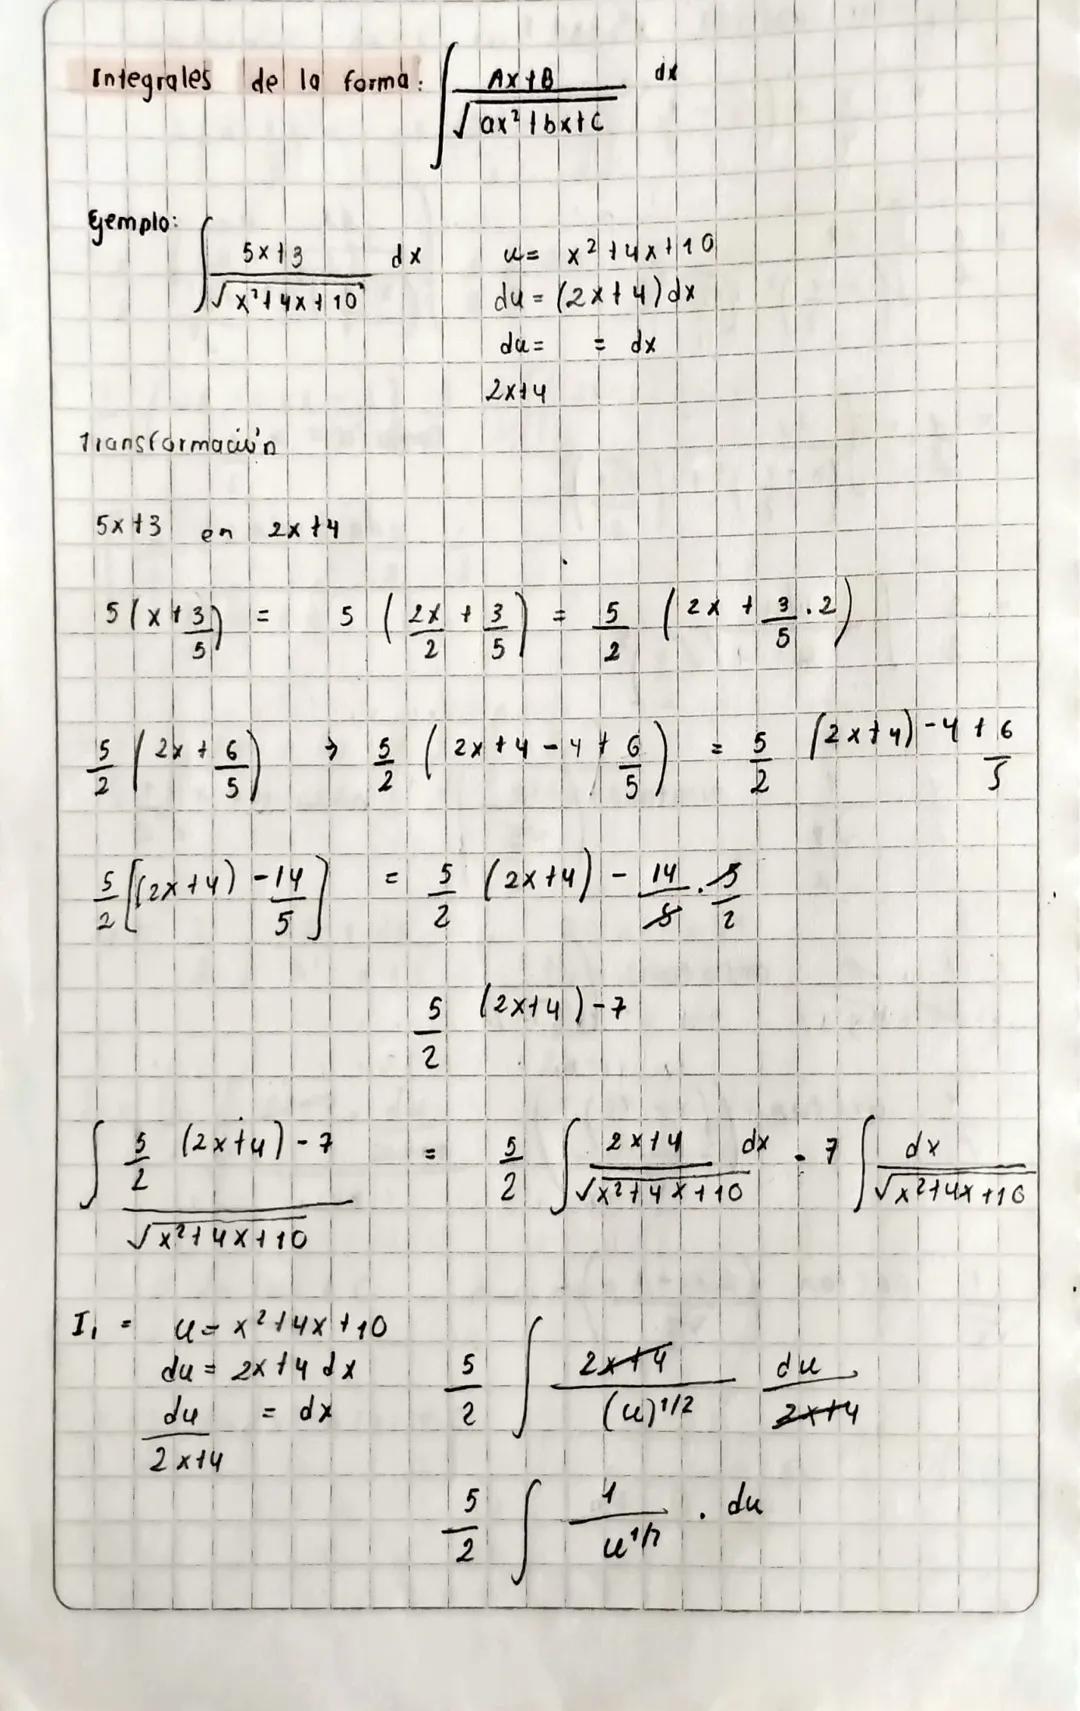 Integrales de la forma: ∫ Ax+B / √(ax²+bx+c) dx
Ejemplo: ∫ 5x+3 / √(x²+4x+10) dx
u = x²+4x+10
du = (2x+4)dx
du = = dx
2x+4
Transformación
5x+3 en 2x+4
5(x+3/5) = 5(2x/2 + 3/5) = 5/2 (2x + 3/5 . 2)
5/2 (2x + 6/5) → 5/2 (2x+4-4+6/5) = 5/2 (2x+4)-4+6/5
5/2 [(2x+4) -14/5] = 5/2 (2x+4) - 14/5 . 5/2
5/2 (2x+4)-7
∫ 5/2 (2x+4)-7 / √(x²+4x+10) = 5/2 ∫ 2x+4 / √(x²+4x+10) dx - 7 ∫ dx / √(x²+4x+10)
I₁ = u = x²+4x+10
du = 2x+4 dx
du / 2x+4 = dx
5/2 ∫ 2x+4 / (u)^1/2 du / 2x+4
5/2 ∫ 1 / u^1/2 . du